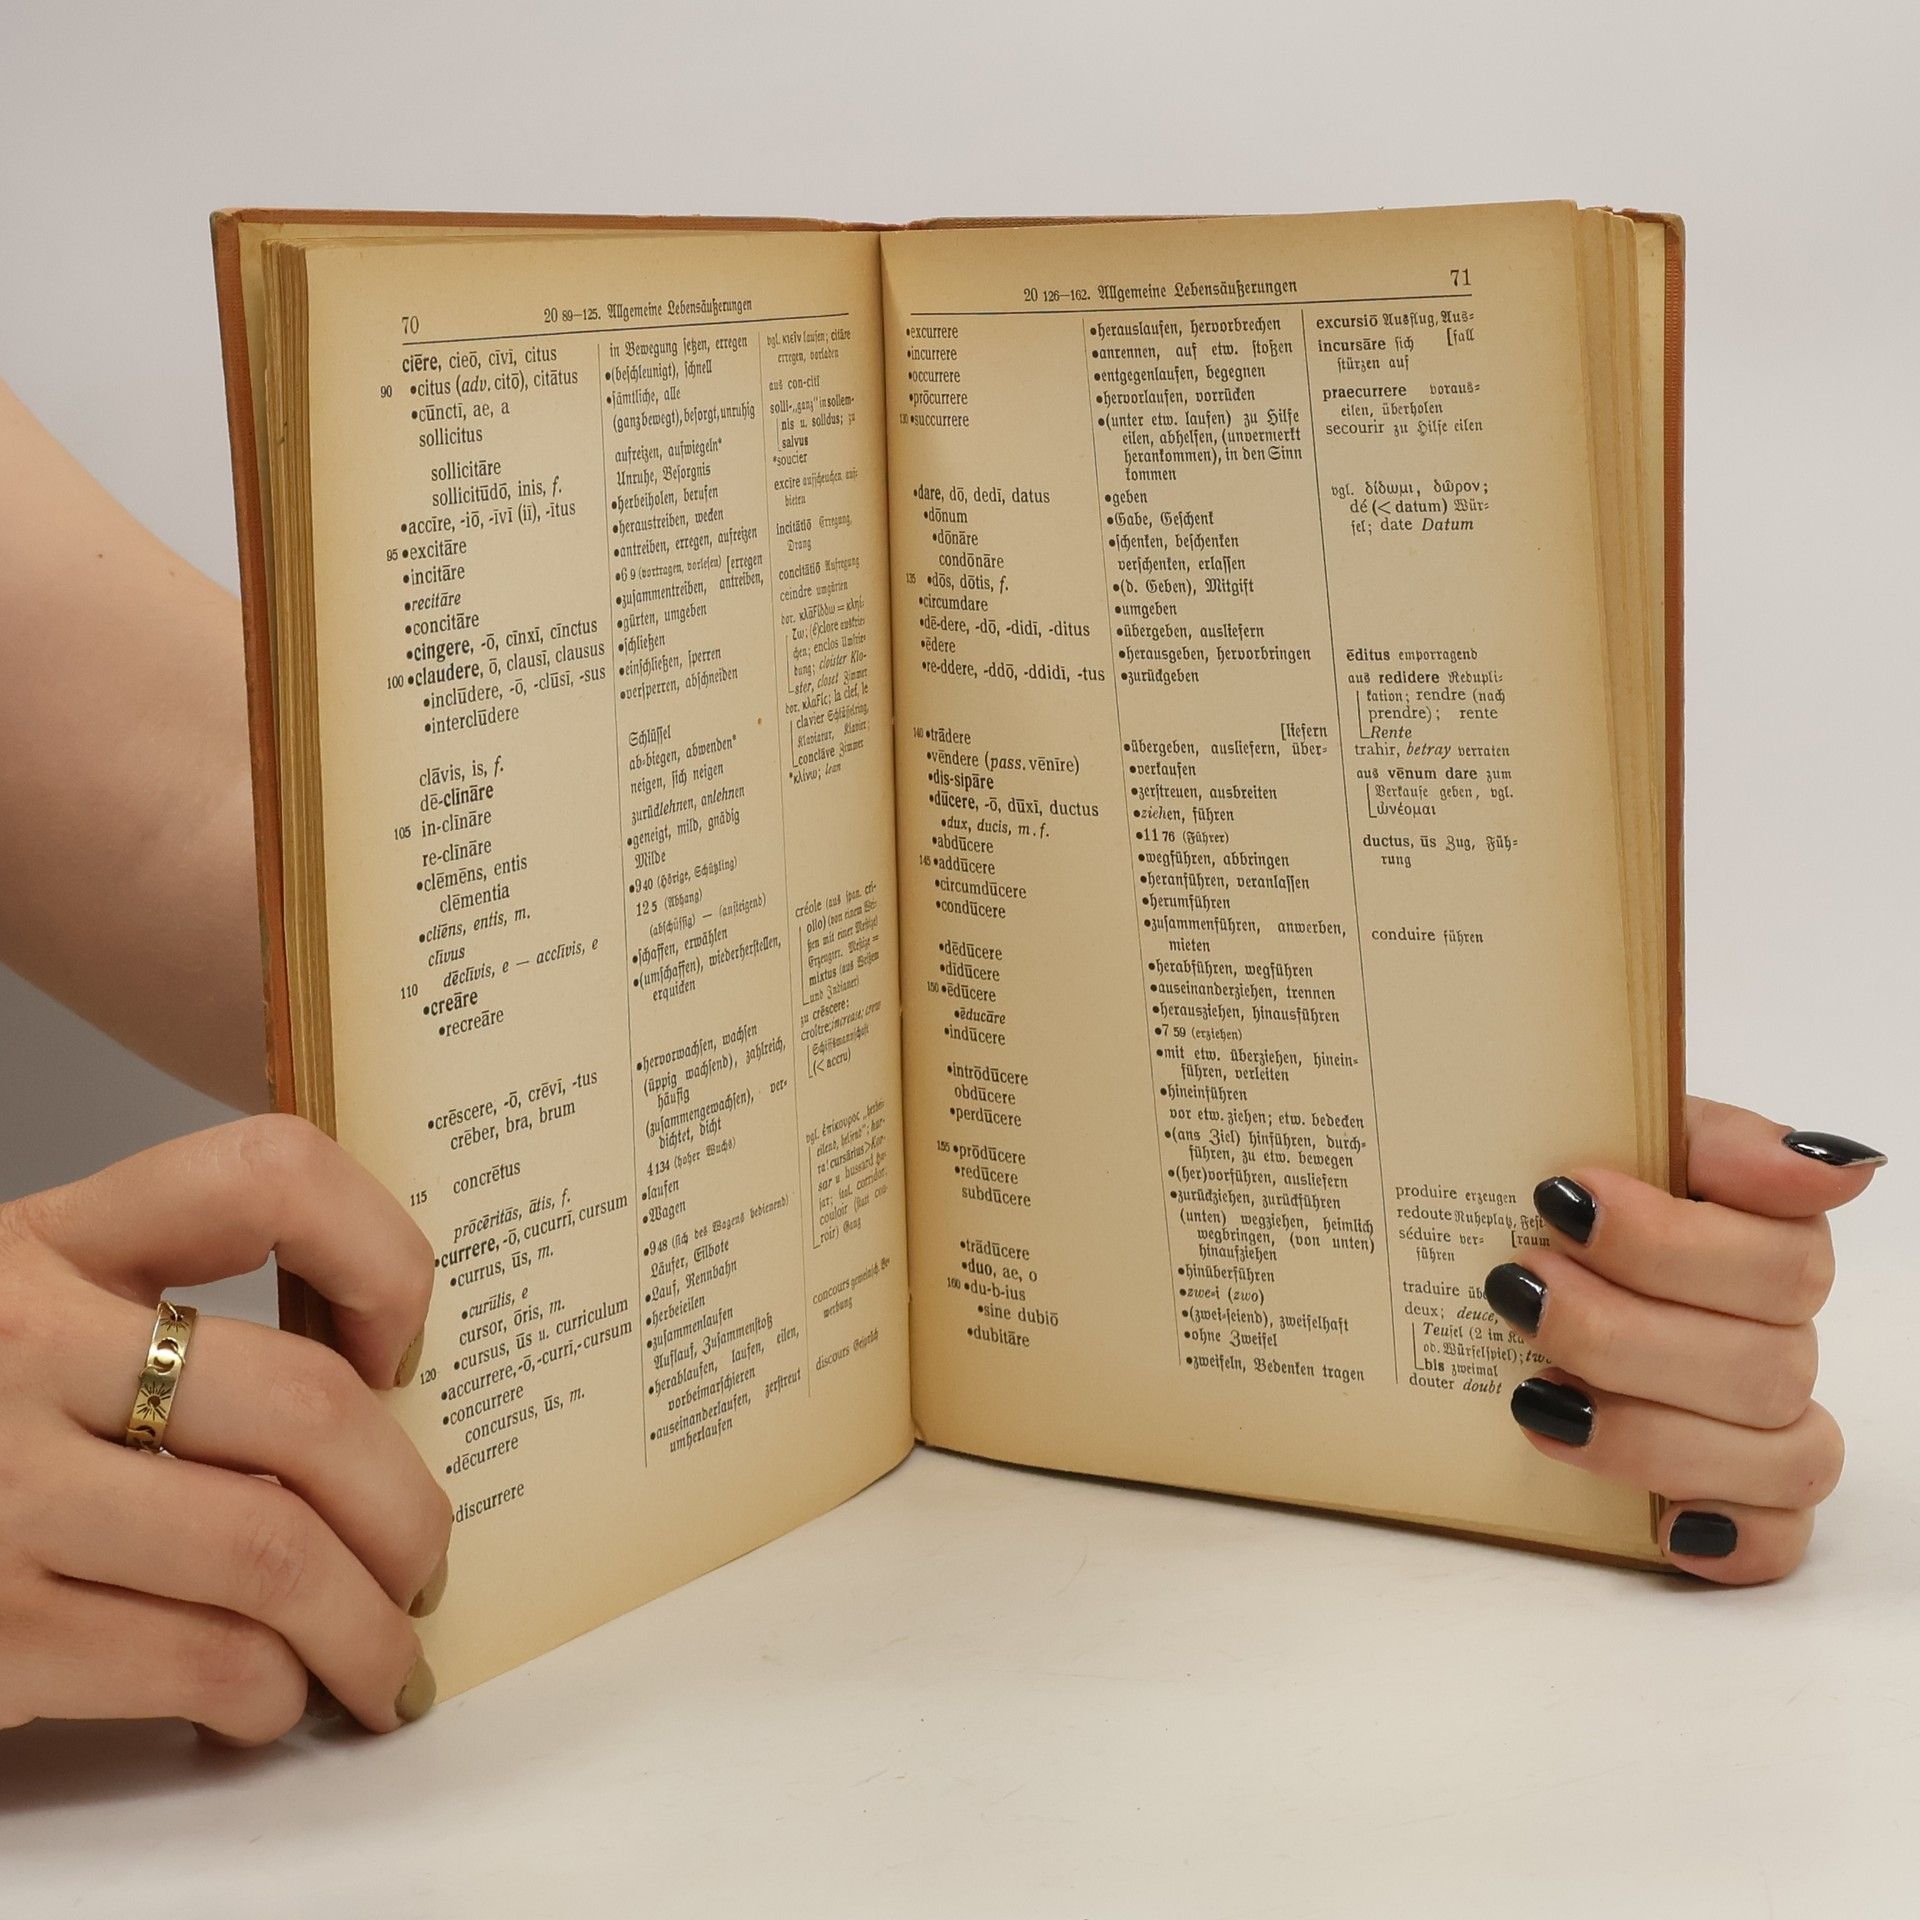 70
20 89—125. Allgemeine Lebensäußerungen
ciēre, cieō, cīvī, citus
90 •citus (adv. citō), citātus
•cūnctī, ae, a
sollicitus
sollicitāre
sollicitūdō, inis, f.
•accīre, -iō, -īvī (iī), -ītus
95 •excitāre
•incitāre
•recitāre
•concitāre
•cingere, -ō, cīnxī, cīnctus
100 •claudere, ō, clausī, clausus
•inclūdere, -ō, -clūsī, -sus
•interclūdere
clāvis, is, f.
dē-clīnāre
105 in-clīnāre
re-clīnāre
•clēmēns, entis
clēmentia
•cliēns, entis, m.
clīvus
110 dēclīvis, e — acclīvis, e
•creāre
•recreāre
•crēscere, -ō, crēvī, -tus
crēber, bra, brum
115 concrētus
prōcēritās, ātis, f.
•currere, -ō, cucurrī, cursum
•currus, ūs, m.
•curūlis, e
cursor, ōris, m.
120 •cursus, ūs u. curriculum
•accurrere, -ō, -currī, -cursum
•concurrere
concursus, ūs, m.
•dēcurrere
•discurrere
in Bewegung setzen, erregen
•(beschleunigt), schnell
•sämtliche, alle
(ganz bewegt), besorgt, unruhig
aufreizen, aufwiegeln*
Unruhe, Besorgnis
•herbeiholen, berufen
•heraustreiben, wecken
•antreiben, erregen, aufreizen
•6 9 (vortragen, vorlesen) [erregen
•zusammentreiben, antreiben,
•gürten, umgeben
•schließen
•einschließen, sperren
•versperren, abschneiden
Schlüssel
ab-biegen, abwenden*
neigen, sich neigen
zurücklehnen, anlehnen
•geneigt, mild, gnädig
Milde
•9 40 (Hörige, Schützling)
12 5 (Abhang)
(abschüssig) — (ansteigend)
•schaffen, erwählen
•(umschaffen), wiederherstellen,
erquicken
•hervorwachsen, wachsen
(üppig wachsend), zahlreich,
häufig
(zusammengewachsen), ver-
dichtet, dicht
4 134 (hoher Wuchs)
•laufen
•Wagen
•9 48 (sich des Wagens bedienend)
Läufer, Eilbote
•Lauf, Rennbahn
•herbeieilen
•zusammenlaufen
Auflauf, Zusammenstoß
•herablaufen, laufen, eilen,
vorbeimarschieren
•auseinanderlaufen, zerstreut
umherlaufen
vgl. κιεῖν laufen; citāre
erregen, vorladen
aus con-citī
solli- „ganz" in sollem-
nis u. solidus; zu
salvus
*soucier
excīre aufscheuchen, auf-
bieten
incitātiō Erregung,
Drang
concitātiō Aufregung
ceindre umgürten
bung; cloister Klo-
ster, closet Zimmer
clavier Schlüsselring,
Klaviatur, Klavier;
conclāve Zimmer
*κλίνω; lean
créole (aus span. cri-
ollo) (von einem Wei-
ßen mit einer Mestize)
Erzeugter. Mestize =
mixtus (aus Weißem
und Indianer)
zu crēscere:
croître; increase; crew
Schiffsmannschaft
(< accru)
roir) Gang
werbung
discours Gespräch
71
20 126—162. Allgemeine Lebensäußerungen
•excurrere
•incurrere
•occurrere
•prōcurrere
130 •succurrere
•dare, dō, dedī, datus
•dōnum
•dōnāre
condōnāre
135 •dōs, dōtis, f.
•circumdare
•dē-dere, -dō, -didī, -ditus
•ēdere
•re-ddere, -ddō, -ddidī, -tus
140 •trādere
•vēndere (pass. vēnīre)
•dis-sipāre
•dūcere, -ō, dūxī, ductus
•dux, ducis, m. f.
•abdūcere
145 •addūcere
•circumdūcere
•condūcere
•dēdūcere
•dīdūcere
150 •ēdūcere
•ēducāre
•indūcere
•intrōdūcere
obdūcere
•perdūcere
155 •prōdūcere
•redūcere
subdūcere
•trādūcere
•duo, ae, o
160 •du-b-ius
•sine dubiō
•dubitāre
•herauslaufen, hervorbrechen
•anrennen, auf etw. stoßen
•entgegenlaufen, begegnen
•hervorlaufen, vorrücken
•(unter etw. laufen) zu Hilfe
eilen, abhelfen, (unvermerkt
herankommen), in den Sinn
kommen
•geben
•Gabe, Geschenk
•schenken, beschenken
verschenken, erlassen
•(d. Geben), Mitgift
•umgeben
•übergeben, ausliefern
•herausgeben, hervorbringen
•zurückgeben
[liefern
•übergeben, ausliefern, über-
•verkaufen
•zerstreuen, ausbreiten
•ziehen, führen
•11 76 (Führer)
•wegführen, abbringen
•heranführen, veranlassen
•herumführen
•zusammenführen, anwerben,
mieten
•herabführen, wegführen
•auseinanderziehen, trennen
•herausziehen, hinausführen
•7 59 (erziehen)
•mit etw. überziehen, hinein-
führen, verleiten
•hineinführen
vor etw. ziehen; etw. bedecken
•(ans Ziel) hinführen, durch-
führen, zu etw. bewegen
•(her)vorführen, ausliefern
•zurückziehen, zurückführen
(unten) wegziehen, heimlich
wegbringen, (von unten)
hinaufziehen
•hinüberführen
•zwei (zwo)
•(zwei-seiend), zweifelhaft
•ohne Zweifel
•zweifeln, Bedenken tragen
excursiō Ausflug, Aus-
incursāre sich [fall
stürzen auf
praecurrere voraus-
eilen, überholen
secourir zu Hilfe eilen
vgl. δίδωμι, δῶρον;
dé (< datum) Wür-
fel; date Datum
ēditus emporragend
aus redidere Redupli-
kation; rendre (nach
prendre); rente
Rente
trahir, betray verraten
aus vēnum dare zum
Verkaufe geben, vgl.
ὠνέομαι
ductus, ūs Zug, Füh-
rung
conduire führen
produire erzeugen
redoute Ruheplatz, Fest-
séduire ver- [raum
führen
traduire
deux; deuce,
Teufel (2 im
od. Würfelspiel);
bis zweimal
douter doubt